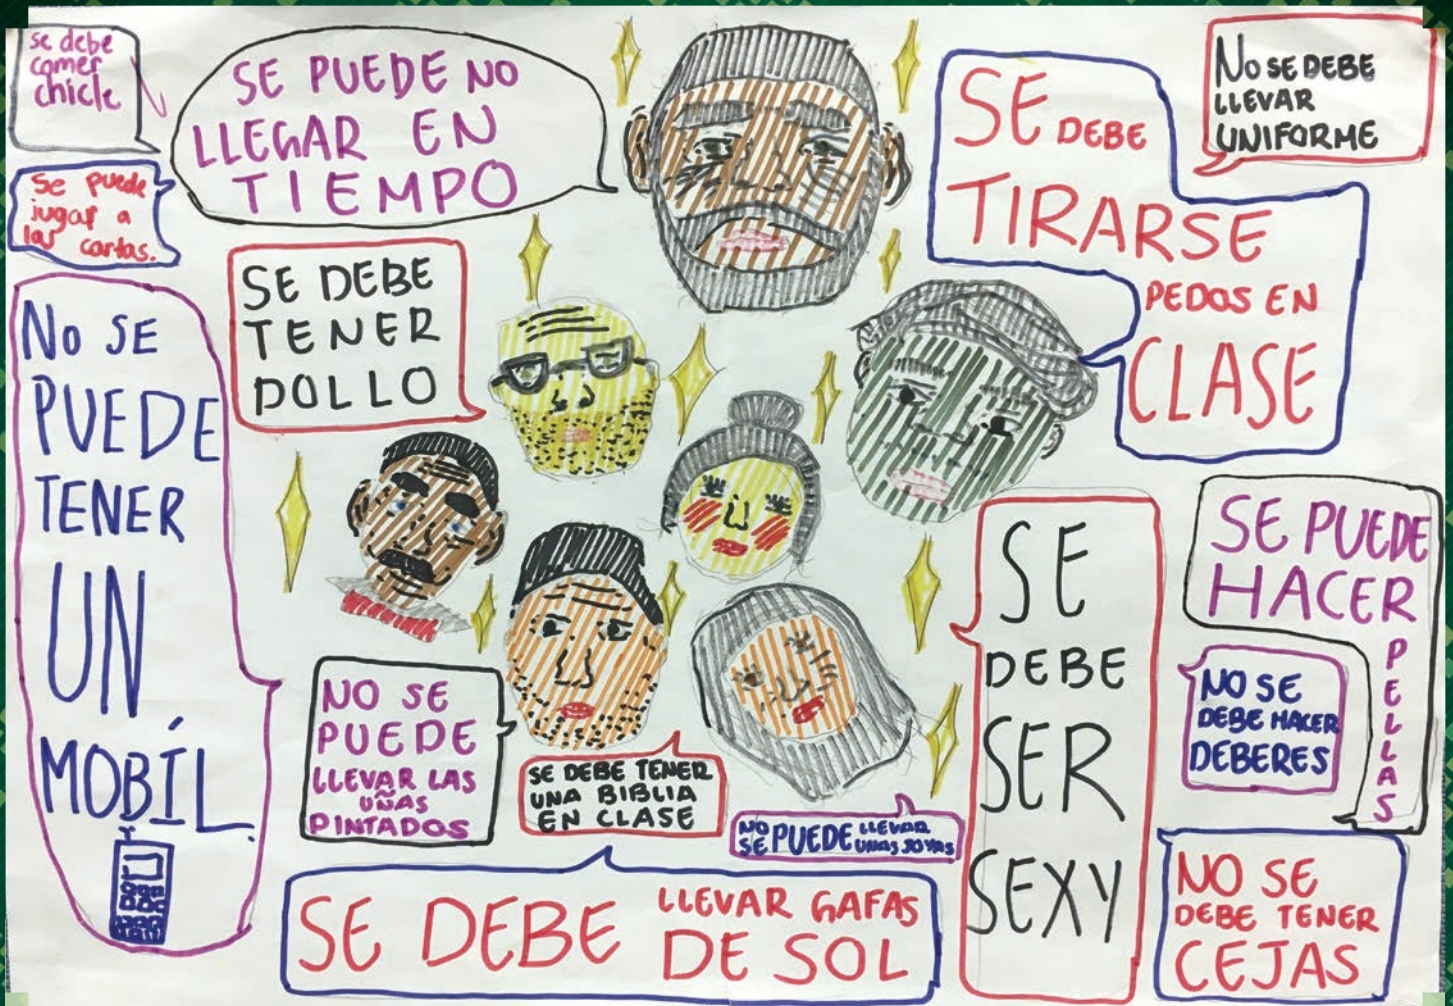 se debe
comer
chicle
SE PUEDE NO
LLEGAR EN
TIEMPO
SE DEBE
TIRARSE
PEDOS EN
CLASE
No SE DEBE
LLEVAR
UNIFORME
Se puede
jugar a
las cartas.
SE DEBE
TENER
DOLLO
No SE
PUEDE
TENER
UN
MOBÍL
SE PUEDE
HACER
PELLAS
SE
DEBE
SER
SEXY
NO SE
DEBE HACER
DEBERES
NO SE
PUEDE
LLEVAR LAS
UÑAS
PINTADOS
SE DEBE TENER
UNA BIBLIA
EN CLASE
NO SE PUEDE LLEVAR UNAS JOYAS
SE DEBE LLEVAR GAFAS
DE SOL
NO SE
DEBE TENER
CEJAS